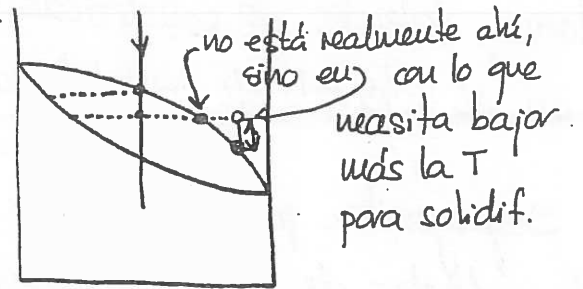 no está realmente ahí,
sino en con lo que
necesita bajar
más la T
para solidif.